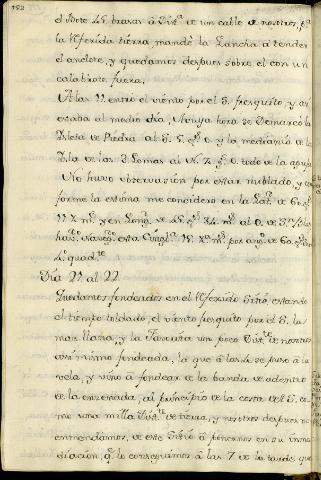 192
el Bote 45 brazas á Dist.ª de un cable de nosotros, p.ª
la Referida tierra, mandé la Lancha á tender
el anclote, y quedamos despues sobre el con un
calabrote fuera.
A las 11 entró el viento por el S. fresquito, y así
estaba al medio dia, á cuya hora se Demarcó la
Isleta de Piedra al S. S. O. y la medianía de la
Isla de las 2 Lomas al N. O. todo de la aguja
No huvo observacion por estar nublado, y
forme la estima me considero en la Lat. de 60 g.
11 m.s y en Long. de 45 g. 34 m.s al O. de S.n
esta Cing.ª 15 m.s por ang.º de 60 g.
4.º quad.te
Dia 21 al 22
Quedamos fondeados en el Referido Sitio, estando
el tiempo toldado, el viento fresquito por el S. la
mar llana, y la Favorita un poco Dist.te de nosotros
asi mismo fondeada, la que á las se puso á la
vela, y vino á fondear de la banda de adentro
de la ensenada, al principio de la costa del S. co-
mo una milla Dist.te de tierra, y nosotros despues nos
enmendamos, de este Sitio á ponernos en su inme
diacion, q.e lo conseguimos á las 7 de la tarde, que